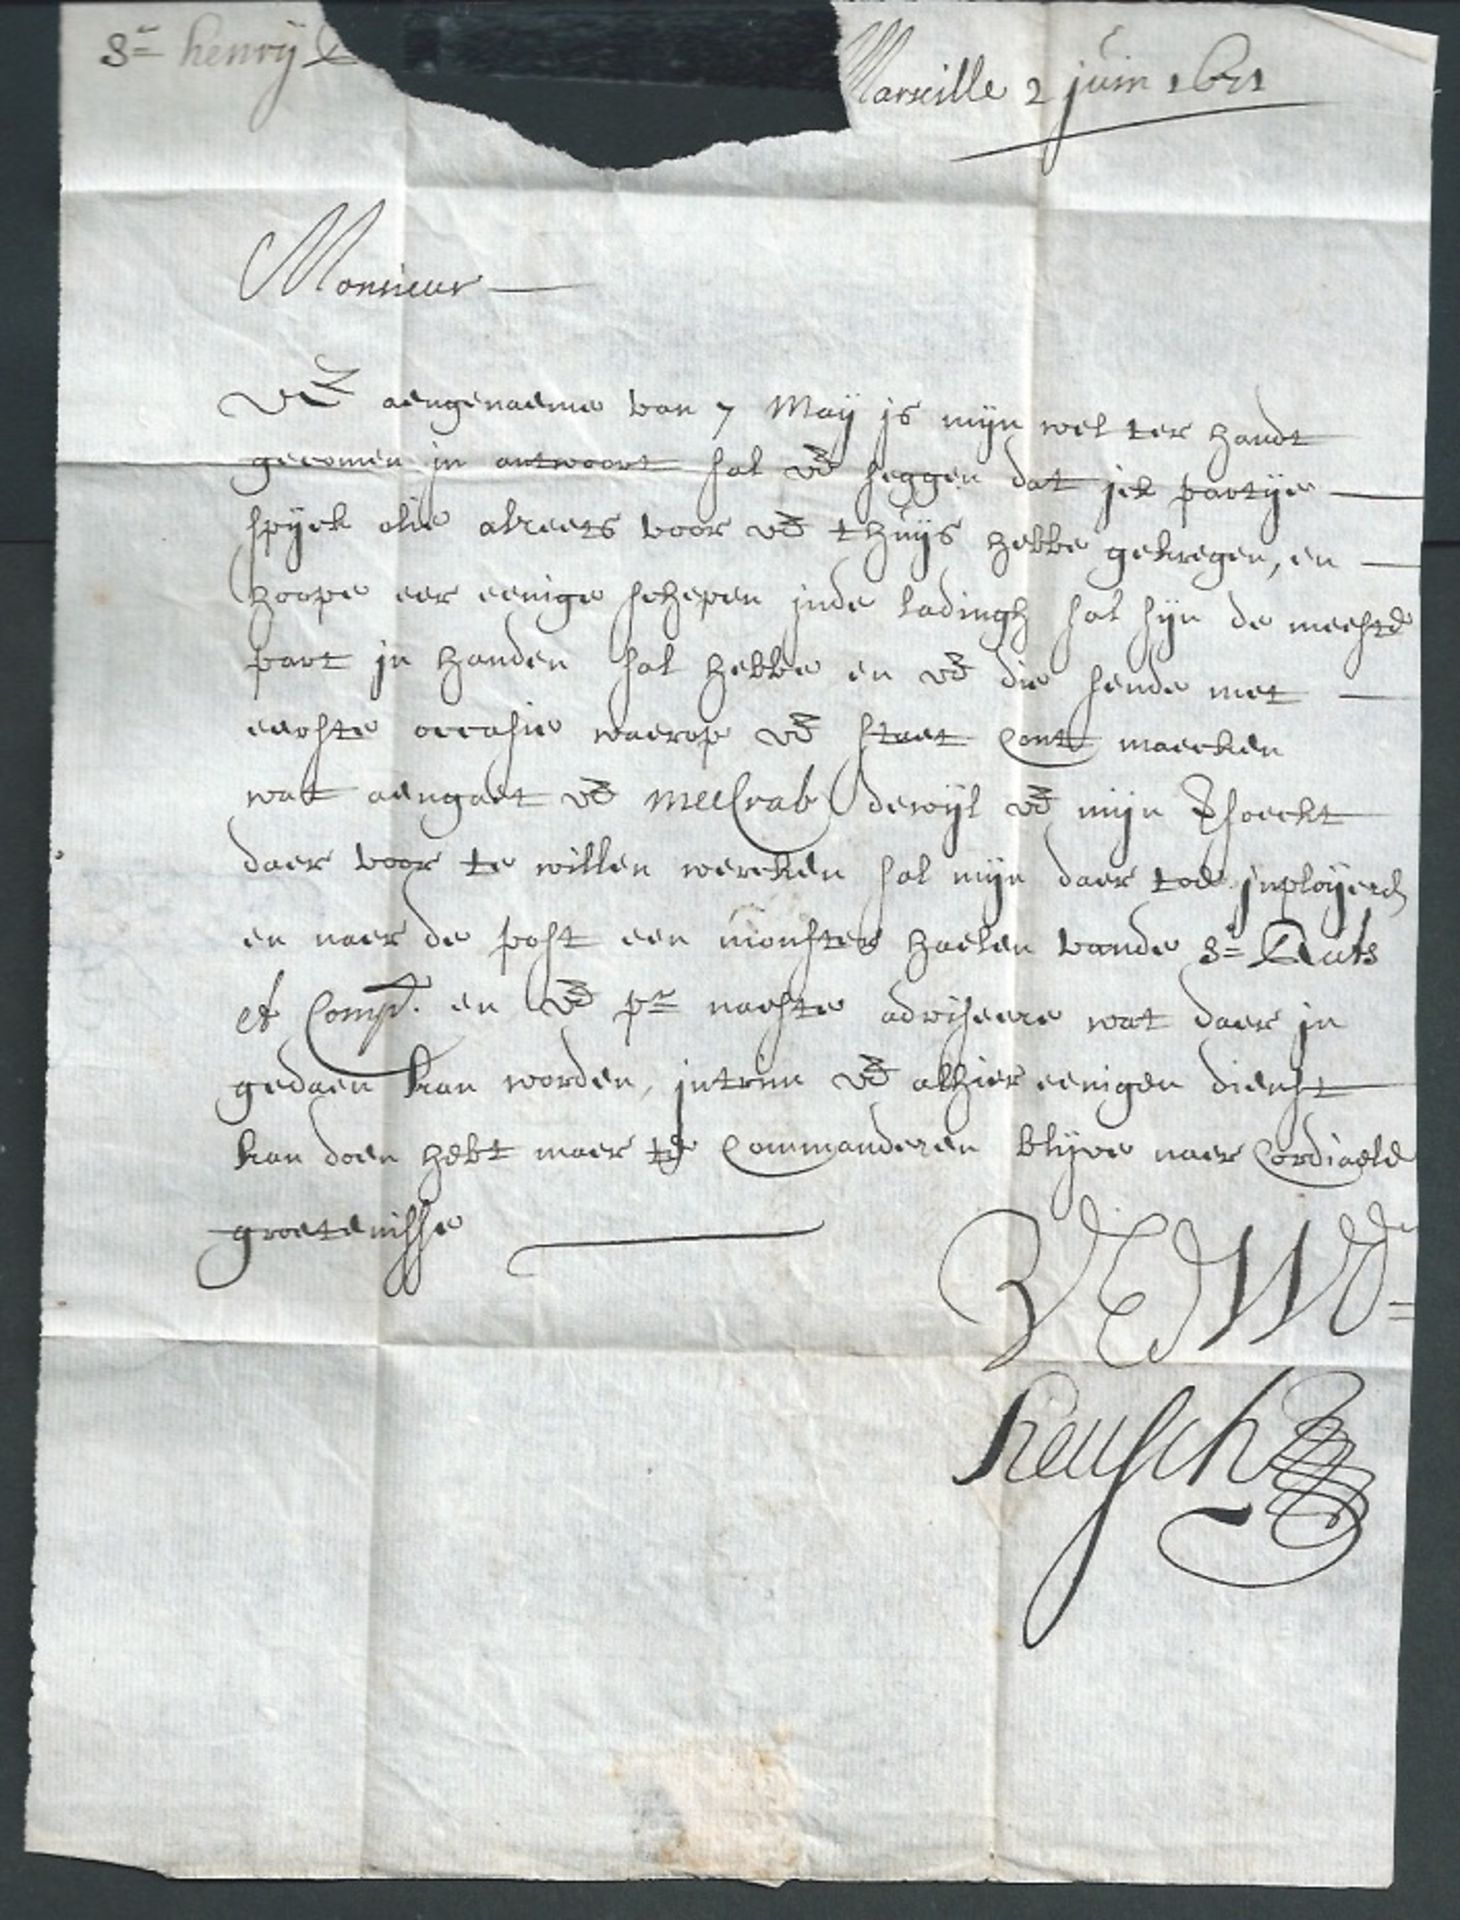 Sr henrÿ
Marseille 2 juin 1671
Monsieur
VE aengenaeme van 7 Maÿ is mijn wel ter handt
gecomen in antwoort sal VE seggen dat ick partije
spijck olie alreets voor VE t huijs hebbe gekregen, en
hoope eer eenige schepen inde ladingh sal sijn de meeste
part in handen sal hebbe en VE die sende met
eerste occasie waerop VE staet cont maecken
wat aengaet VE meeCrab dewijl VE mijn Vsoeckt
daer voor te willen wercken sal mijn daer toe inploijeren
en naer de post een monster haelen vande Sr
et Comp. en VE pr naeste adviseere wat daer in
gedaen kan worden, intrim VE alhier eenigen dienst
kan doen hebt maer te Commanderen blijve naer Cordiaele
groetenisse
VEDWDr
Reusch